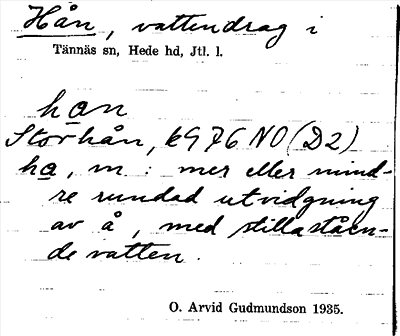 Hån, vattendrag i
Tännäs sn, Hede hd, Jtl. l.
han
Storhån, k976 NO (D2)
ha, m : mer eller mind-
re rundad utvidgning
av å, med stillaståen-
de vatten.
O. Arvid Gudmundson 1935.